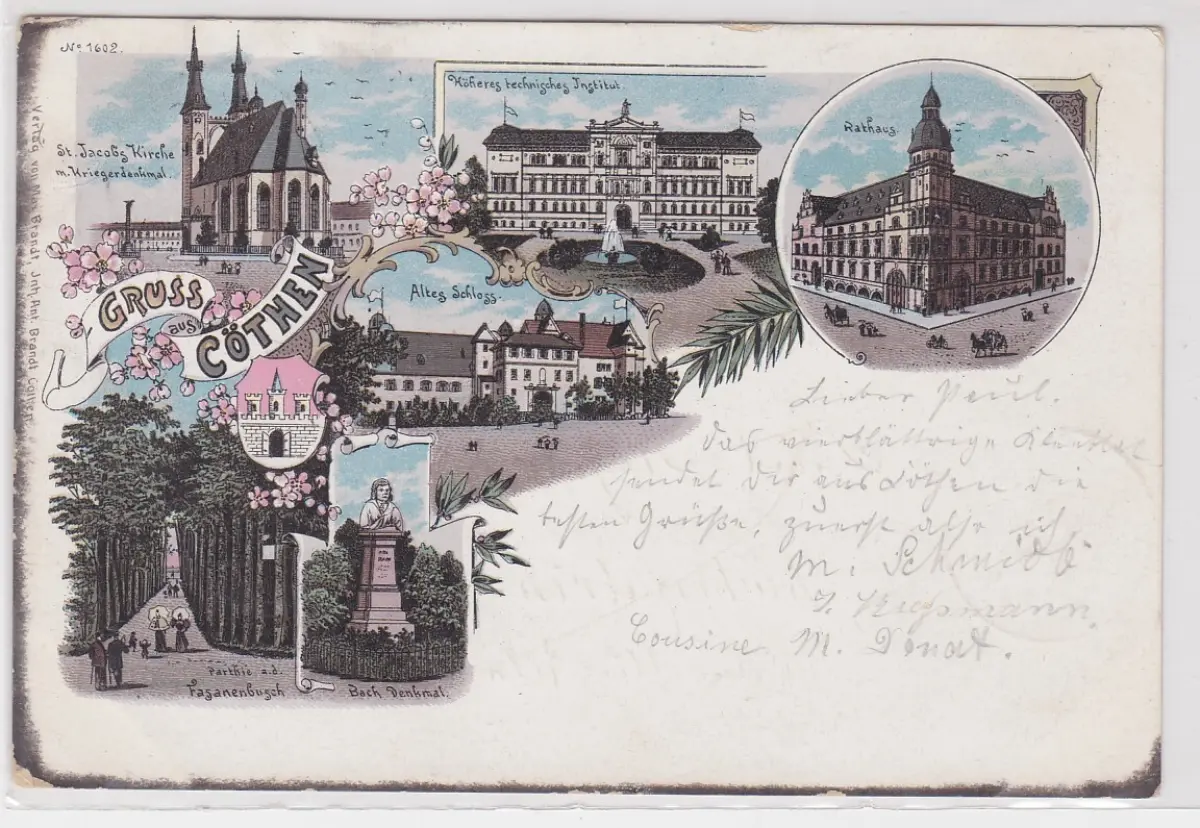 No. 1602.
St. Jacobs Kirche
m. Kriegerdenkmal.
Höheres technisches Institut.
Rathaus.
GRUSS
aus
CÖTHEN
Altes Schloss.
Parthie a.d.
Fasanenbusch
Bach Denkmal.
Verlag von Brandt Jnh. Ant. Brandt
Lieber Paul.
Das vierblättrige Kleeblatt
sendet Dir aus Cöthen die
besten Grüße, zuerst also ich
M. Schmidt
Cousine M. Donat.